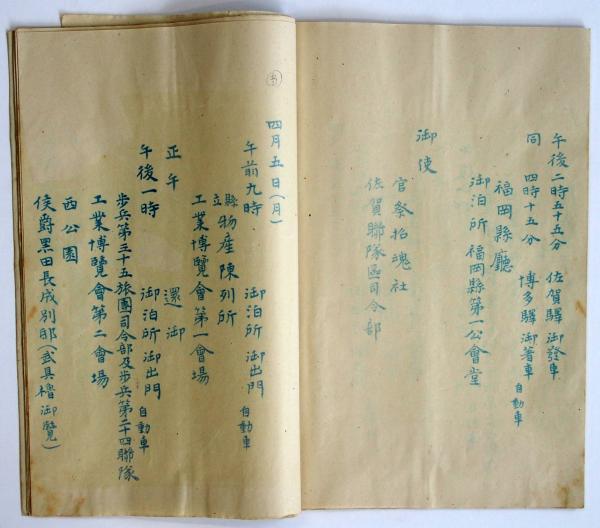 午後二時五十五分 佐賀驛 御發車
同 四時十五分 博多驛 御著車 自動車
福岡縣廳
御泊所 福岡縣第一公會堂
御使
官祭招魂社
佐賀聯隊區司令部
四月五日(月)
午前九時 御泊所 御出門 自動車
縣立物産陳列所
工業博覽會第一會場
正午 還御
午後一時 御泊所 御出門 自動車
歩兵第三十五旅團司令部及歩兵第二十四聯隊
工業博覽會第二會場
西公園
侯爵黒田長成別邸(武具櫓御覽)